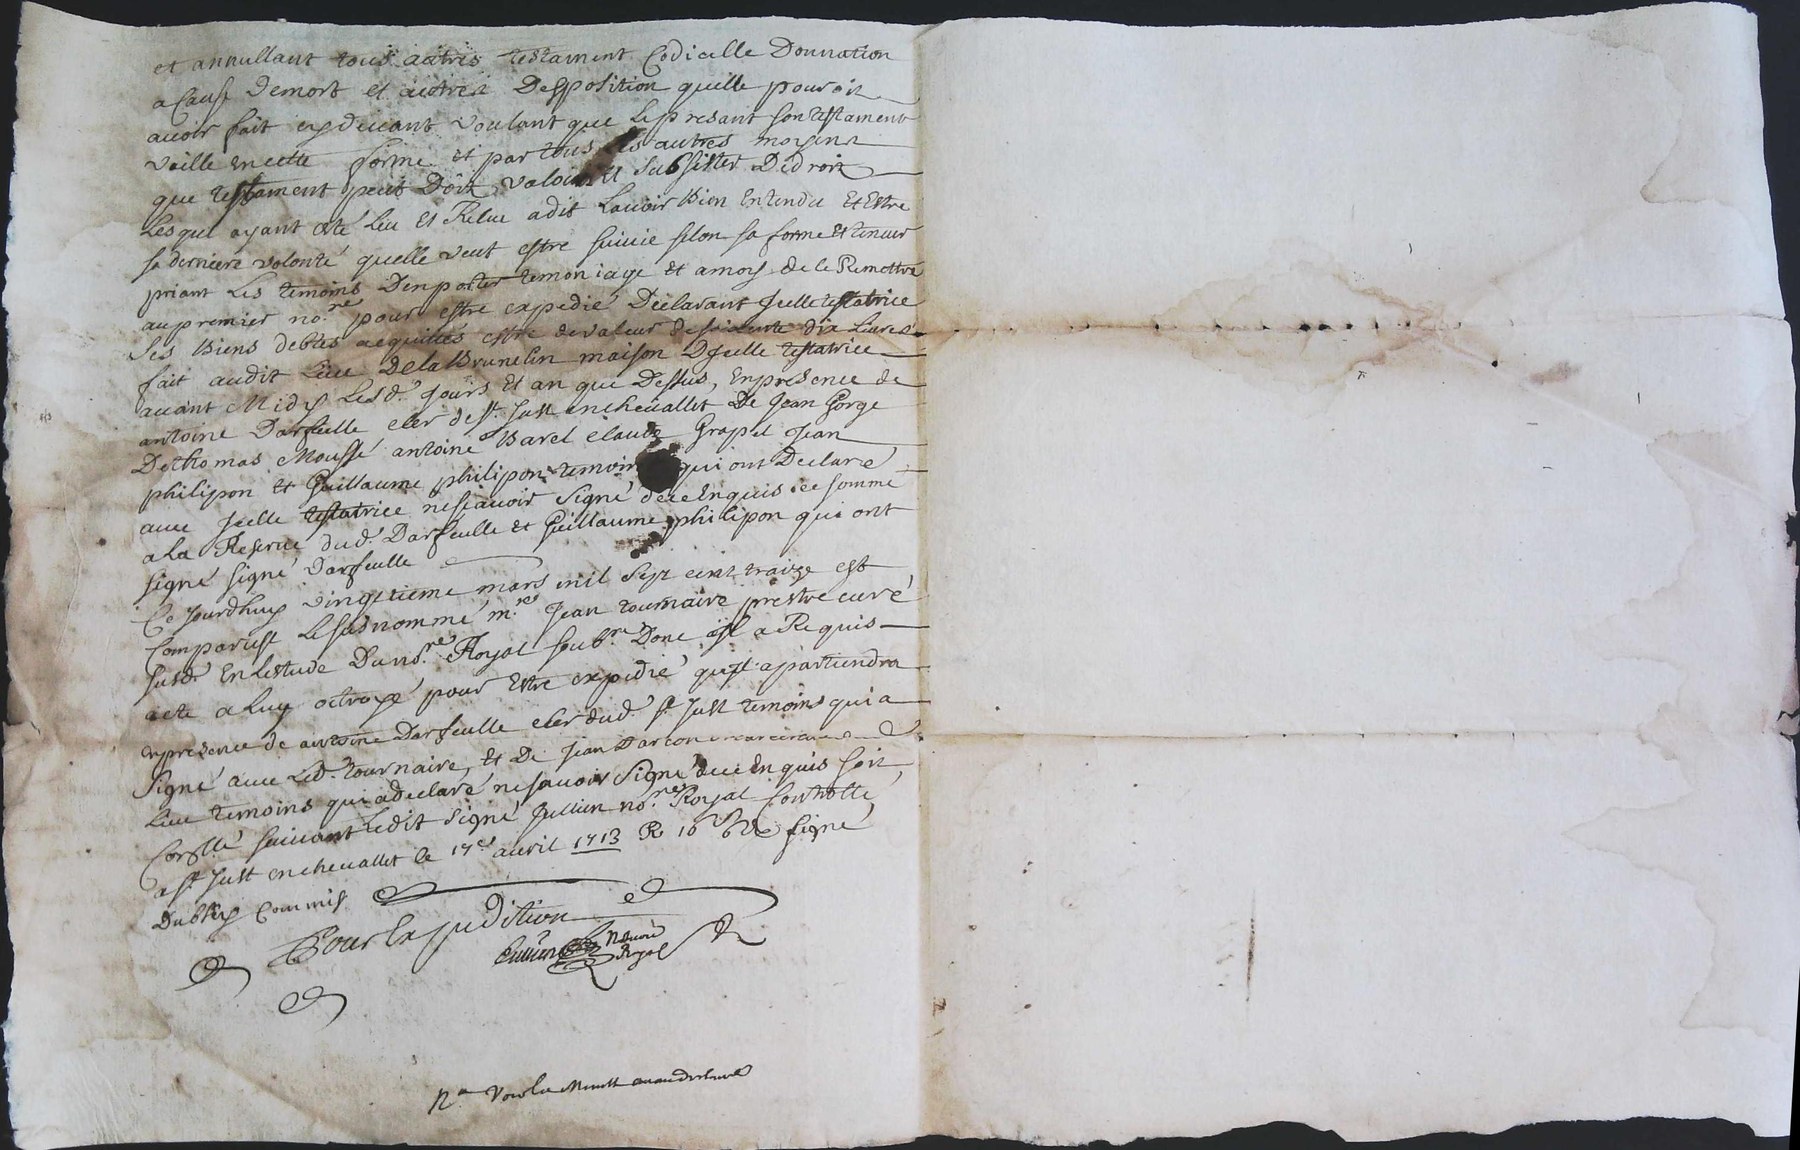 et annullant tous autres testament Codicille Donnation
a Cause demort et autres Desposition quelle pouroit
avoir fait cydevant voulant que lepresant son testament
vaille en cette forme et par tous les autres moyens
que testament peut Doit valoir et subsister Dedroit
Lesquel ayant esté leu et Releu a dit Lavoir Bien Entendu et Estre
sa derniere volonté quelle veut estre suivie selon sa forme et teneur
priant Les temoins Denporter temoniage et a moy de le Remettre
au premier no.re pour estre expedié Declarant Jcelle testatrice
ses Biens debtes acquittés estre de valeur de soixente dix Livres
fait audit Lieu Dela Brunelin maison D'Jcelle testatrice
avant Midy Lesd. Jours et an que Dessus, en presence de
antoine Darfeulle cler de st. Just en chevallet De Jean Gorge
De thomas Moussé antoine Barel claude Grapel Jean
philipon et Guillaume philipon temoins qui ont Declaré
avec Jcelle testatrice ne scavoir signé de ce Enquis ee somme
a La Reserve dud. Darfeulle et Guillaume philipon qui ont
signé signé Darfeulle
Ce jourdhuy vingtieme mars mil sept cent traize est
Comparust Le susnommé m.re Jean tournaire prestre curé
susd. En Lestude Du no.re Royal soub.né Donc il a Requis
acte a Luy octroyé pour Estre expedié quil apartiendra
en presence de antoine Darfeulle cler dud. st Just temoins qui a
signé avec Led. tournaire, et De Jean Darcon dud.
Lieu temoins qui a declaré ne scavoir signé de ce Enquis soit
Conrllé suivant Ledit signé Jullien no.re Royal Controllé
a st. Just en chevallet le 17e avril 1713 R 10 signé
Dubssy Commis
Pour Expedition
Jullien Notaire
Royal